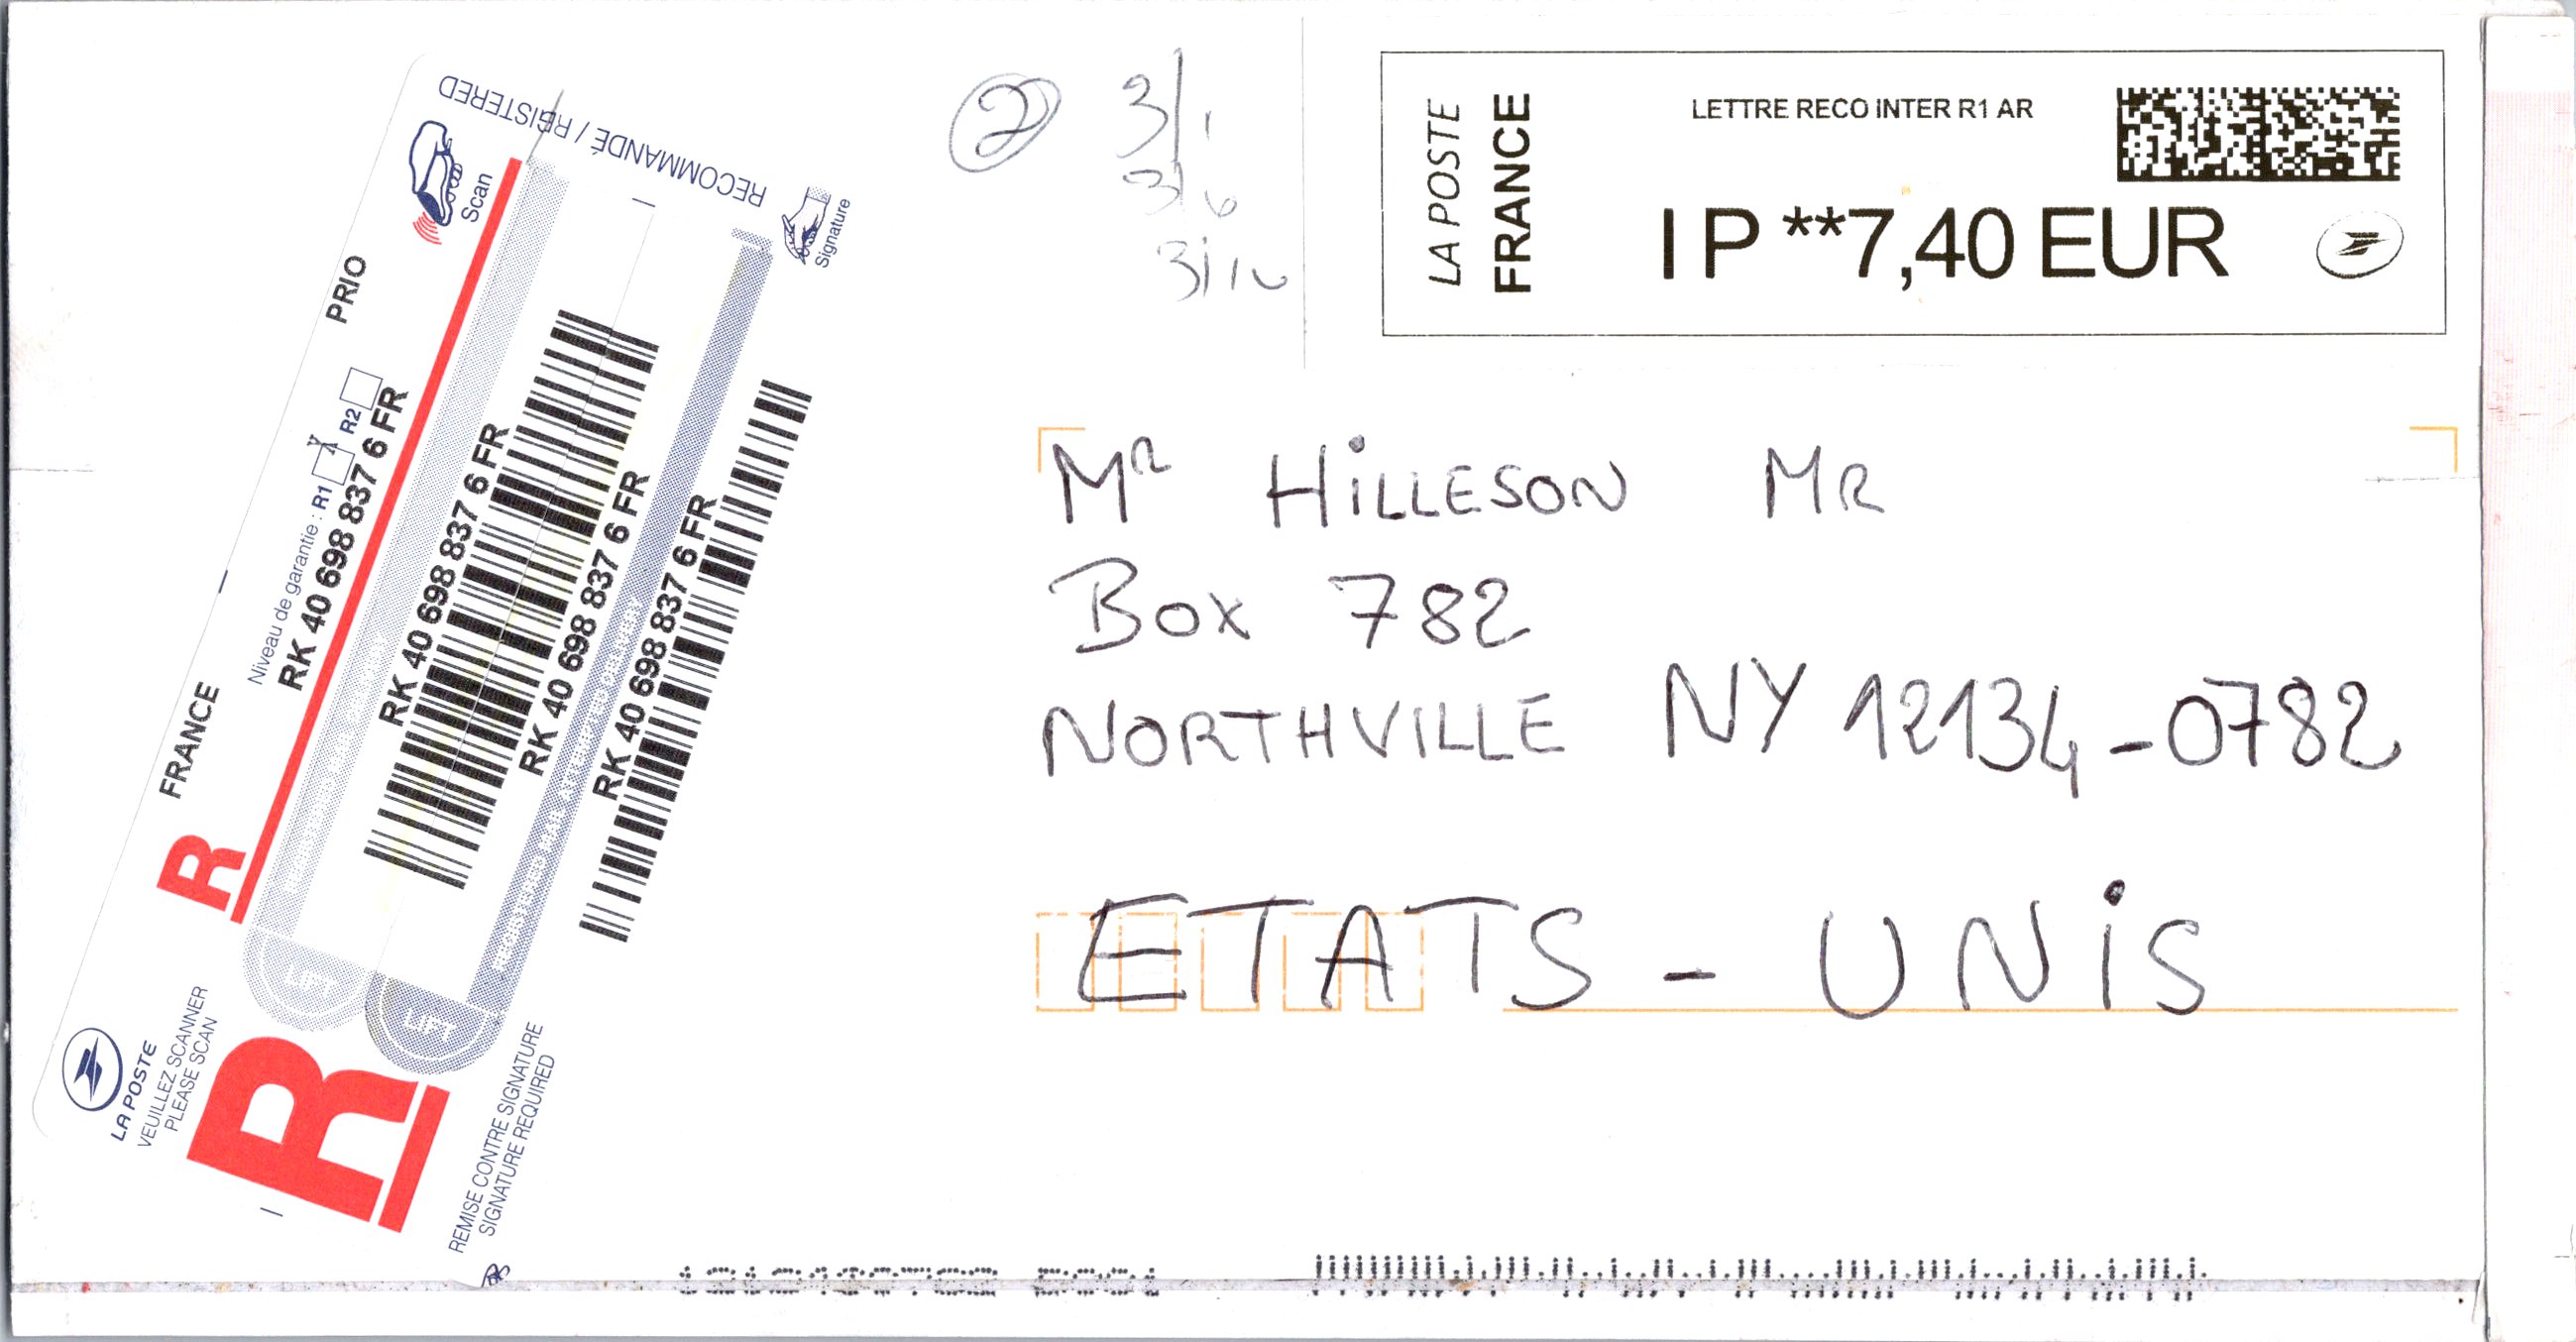 RECOMMANDÉ / REGISTERED
Scan
Signature
PRIO
FRANCE
Niveau de garantie : R1 R2
RK 40 698 837 6 FR
RK 40 698 837 6 FR
RK 40 698 837 6 FR
RK 40 698 837 6 FR
REGISTERED MAIL ATTEMPTED DELIVERY
R
LIFT
LIFT
LA POSTE
VEUILLEZ SCANNER
PLEASE SCAN
R
REMISE CONTRE SIGNATURE
SIGNATURE REQUIRED
2
3/1
3/6
LA POSTE
FRANCE
LETTRE RECO INTER R1 AR
I P **7,40 EUR
MR HiLLESON MR
BOX 782
NORTHVILLE NY 12134-0782
ETATS - UNiS